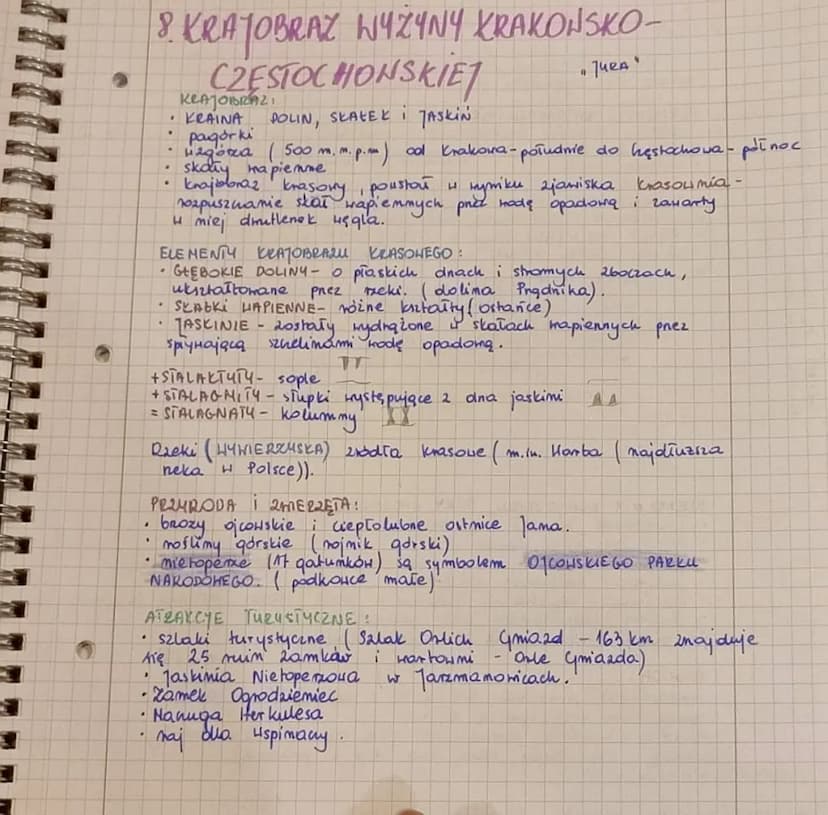 8. KRAJOBRAZ WYŻYNY KRAKOWSKO-
CZĘSTOCHOWSKIEJ
„JURA"
KRAJOBRAZ:
• KRAINA DOLIN, SKAŁEK i JASKIŃ
• pagórki
• wzgórza (500 m. n. p. m) od Krakowa - południe do Częstochowa - północ
• skały wapienne
• krajobraz krasowy, powstał w wyniku zjawiska krasowmia-
rozpuszczanie skał wapiennych przez wodę opadową i zawarty
w niej dwutlenek węgla.
ELEMENTY KRAJOBRAZU KRASOWEGO:
• GŁĘBOKIE DOLINY - o płaskich dnach i stromych zboczach,
ukształtowane przez rzeki. (dolina Prądnika).
• SKAŁKI WAPIENNE - różne kształty (ostańce)
• JASKINIE - zostały wydrążone w skałach wapiennych przez
spływającą szczelinami wodę opadową.
+ STALAKTYTY - sople
+ STALAGMITY - słupki występujące z dna jaskini
= STALAGNATY - kolumny
Rzeki (WYWIERZYSKA) źródła krasowe (m.in. Warta (najdłuższa
rzeka w Polsce)).
PRZYRODA i ZWIERZĘTA:
• brzozy ojcowskie i ciepłolubne ostnice Jama.
• rośliny górskie (rojnik górski)
• nietoperze (17 gatunków) są symbolem OJCOWSKIEGO PARKU
NARODOWEGO. (podkowce małe)
ATRAKCJE TURYSTYCZNE:
• szlaki turystyczne (Szlak Orlich Gniazd - 163 km znajduje
się 25 ruin zamków i warowni - Orle Gniazda)
• Jaskinia Nietoperzowa w Jerzmanowicach.
• Zamek Ogrodzieniec
• Maczuga Herkulesa
• raj dla wspinaczy.